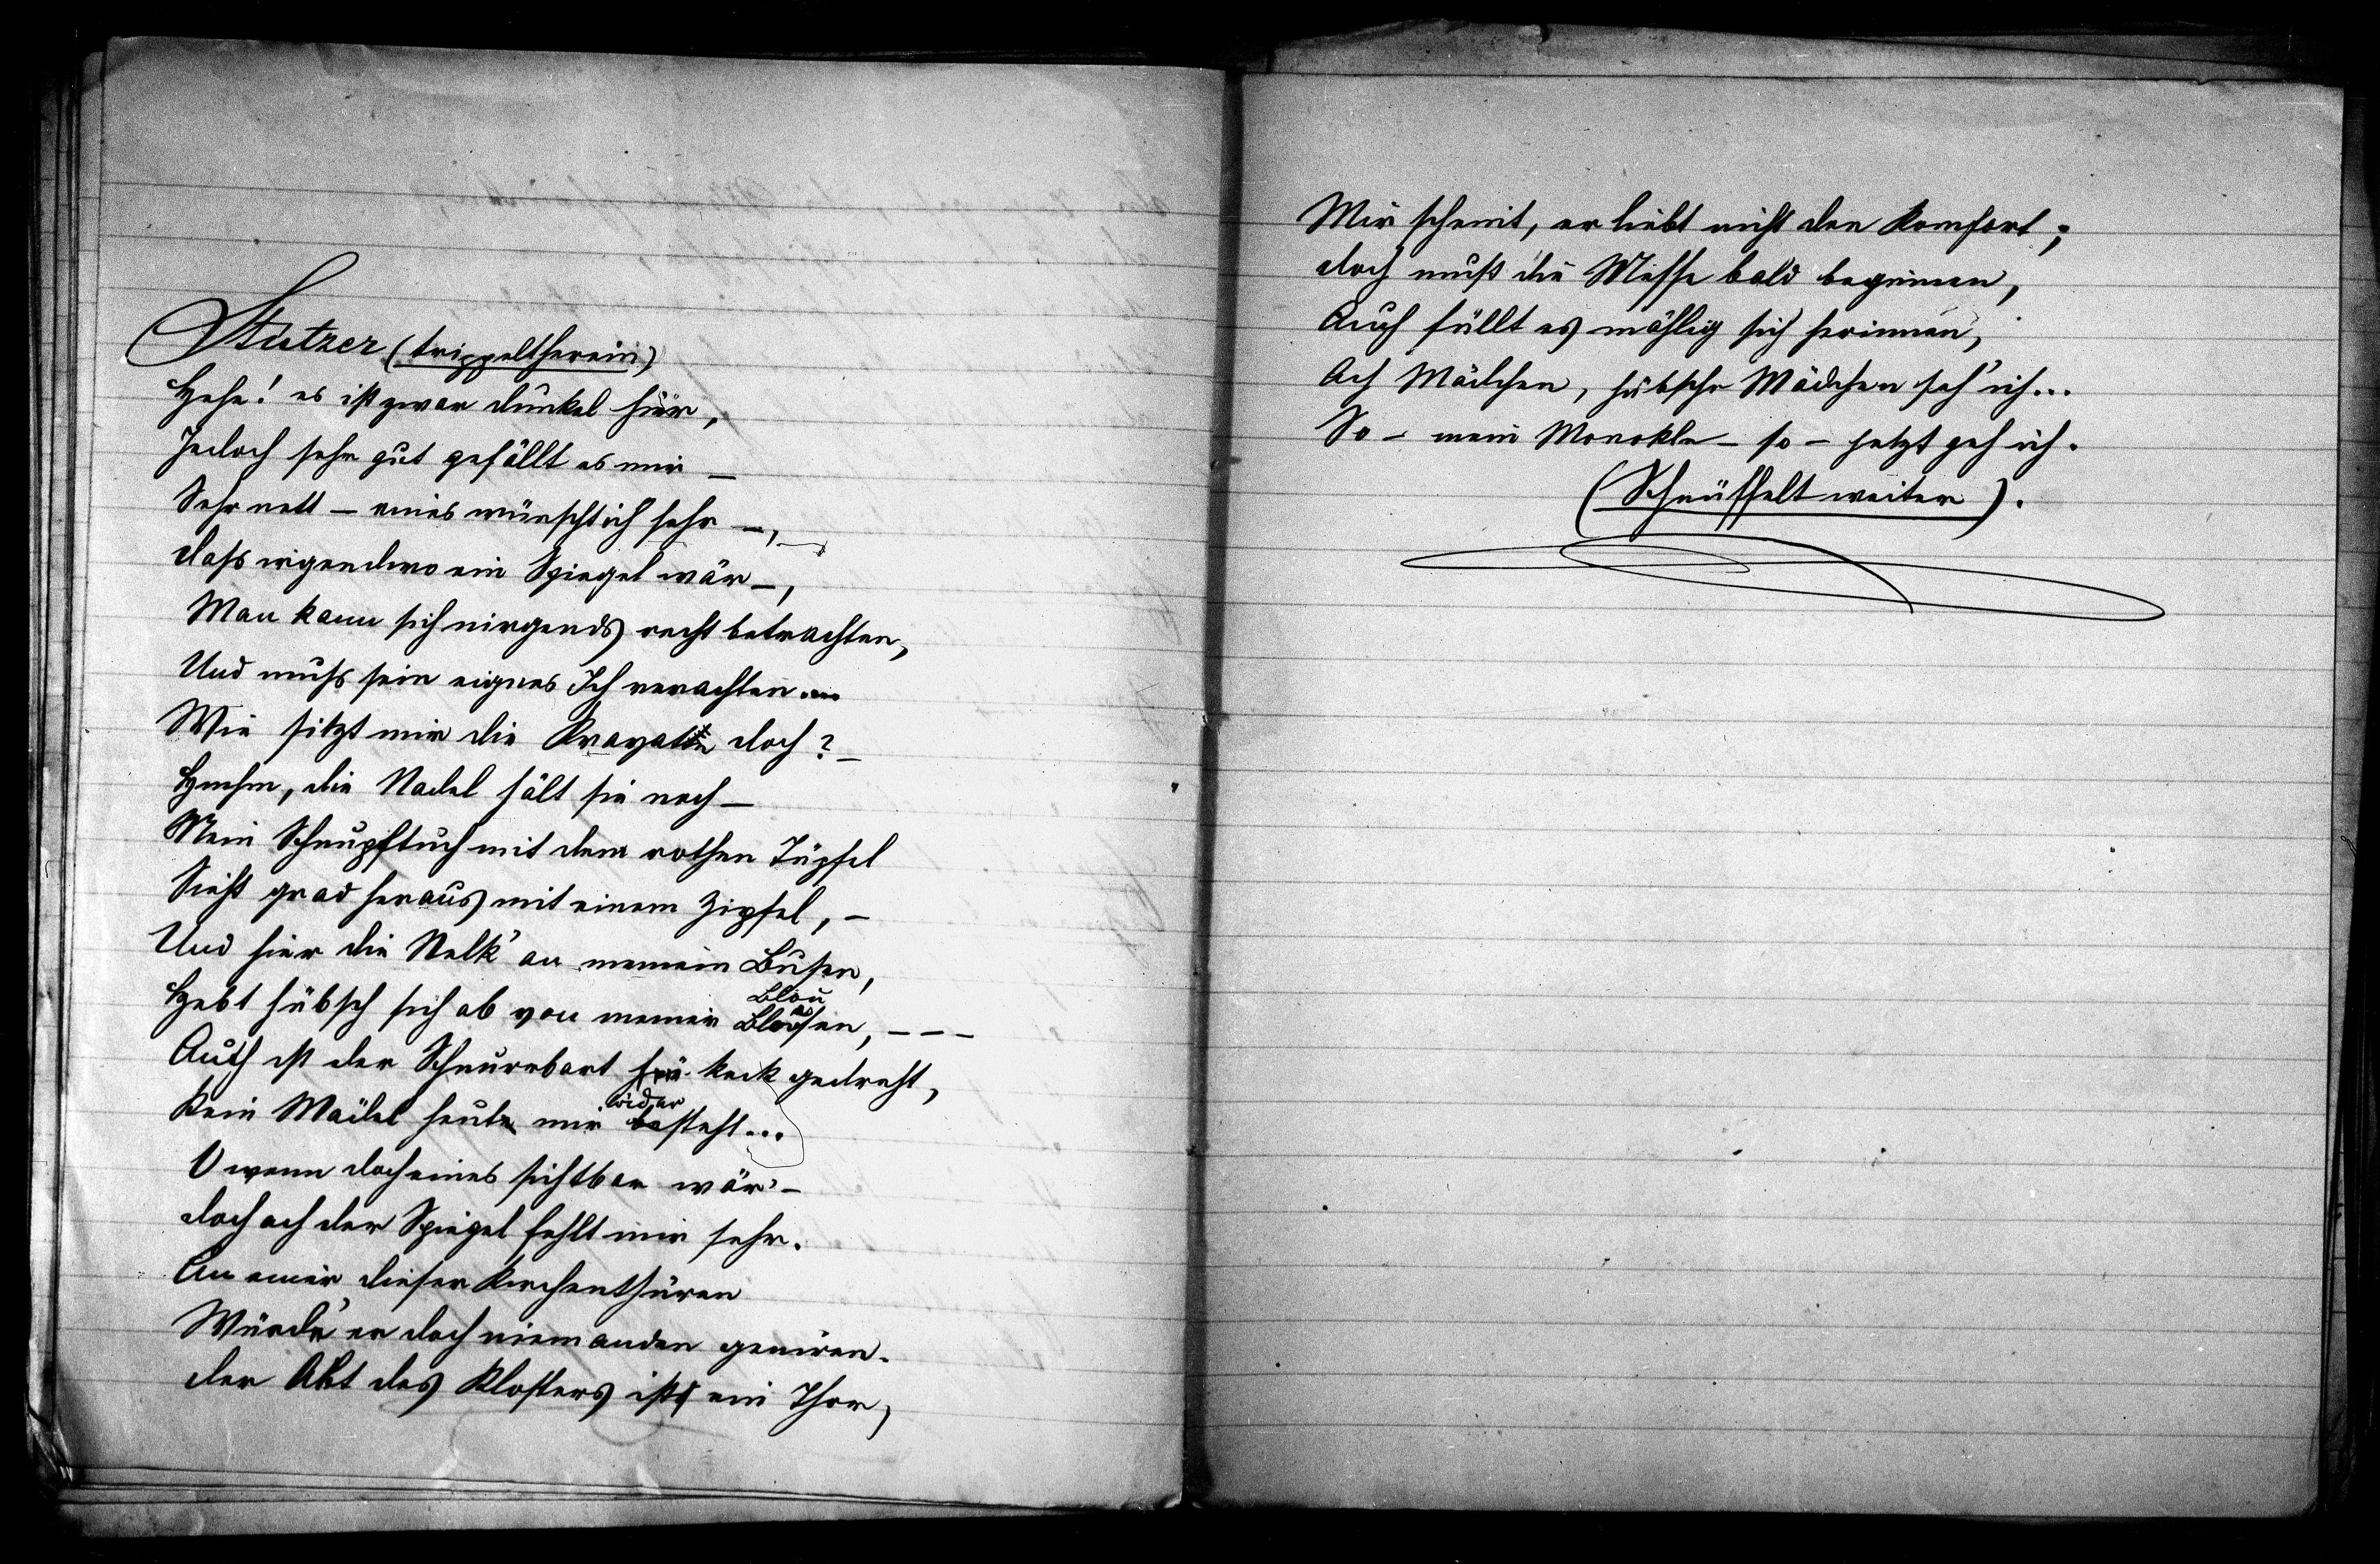 Stutzer (trippelt herein)
Hehe! es ist zwar dunkel hier,
Jedoch sehr gut gefällt es mir –
Sehr nett – eines wünscht ich sehr –,
dass irgendwo ein Spiegel wär –,
Man kann sich nirgends recht betrachten,
Und muss sein eignes Ich verachten....
Wie sitzt mir die Kravatte doch? –
Hmhm, die Nadel hält sie noch –
Mein Schnupftuch mit dem rothen Tüpfel
Sieht grad heraus mit einem Zipfel, –
Und hier die Nelk' an meinem Busen,
Blou
Hebt hübsch sich ab von meiner Blousen, – – –
Auch ist der Schnurrbart keck gedreht,
wider
Kein Mädel heute mir besteht...
O wenn doch eines sichtbar wär' –
doch ach der Spiegel fehlt mir sehr.
An einer dieser Kirchenthüren
Würde er doch niemanden geniren.
der Abt des Klosters ist ein Thor,
Mir scheint, er liebt nicht den Komfort;
doch muß die Messe bald beginnen,
Auch füllt es mählig sich herinnen,
Ach Mädchen, hübsche Mädchen seh' ich...
So – mein Monokle – so – jetzt geh ich.
(Schnüffelt weiter).